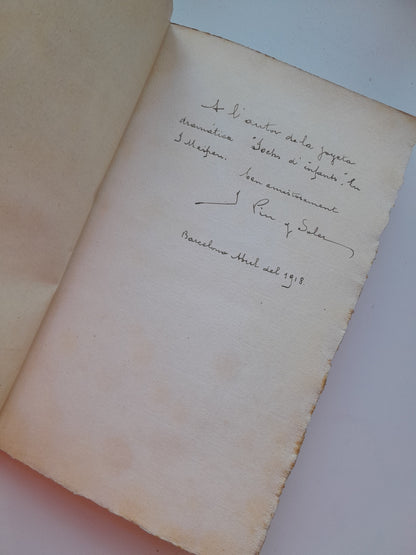 A l'autor de la joyeta
dramática "Jochs d'infants", En
J
ben amistosament
J Pin y Soler
Barcelona Abril del 1918.